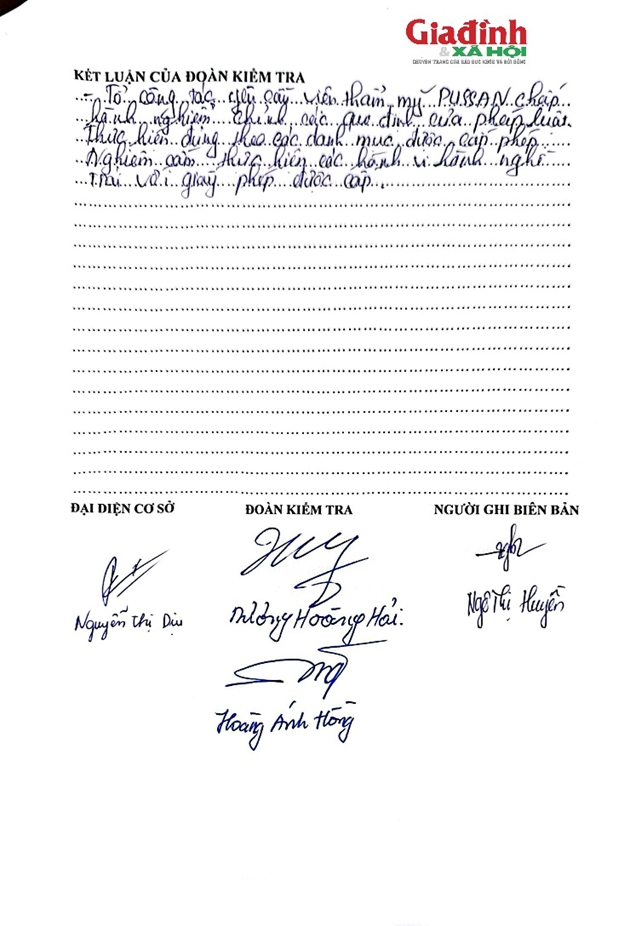 Giađình
& XÃ HỘI
CHUYÊN TRANG CỦA BÁO SỨC KHỎE VÀ ĐỜI SỐNG
KẾT LUẬN CỦA ĐOÀN KIỂM TRA
- Tổ công tác yêu cầu viện thẩm mỹ PUSSAN chấp
hành nghiêm chỉnh các qui định của pháp luật.
Thực hiện đúng theo các danh mục được cấp phép
Nghiêm cấm thực hiện các hành vi hành nghề
Trái với giấy phép được cấp.
ĐẠI DIỆN CƠ SỞ ĐOÀN KIỂM TRA NGƯỜI GHI BIÊN BẢN
Nguyễn Thị Dịu Hoàng Hải. Ngô Thị Huyền
Hoàng Ánh Hồng